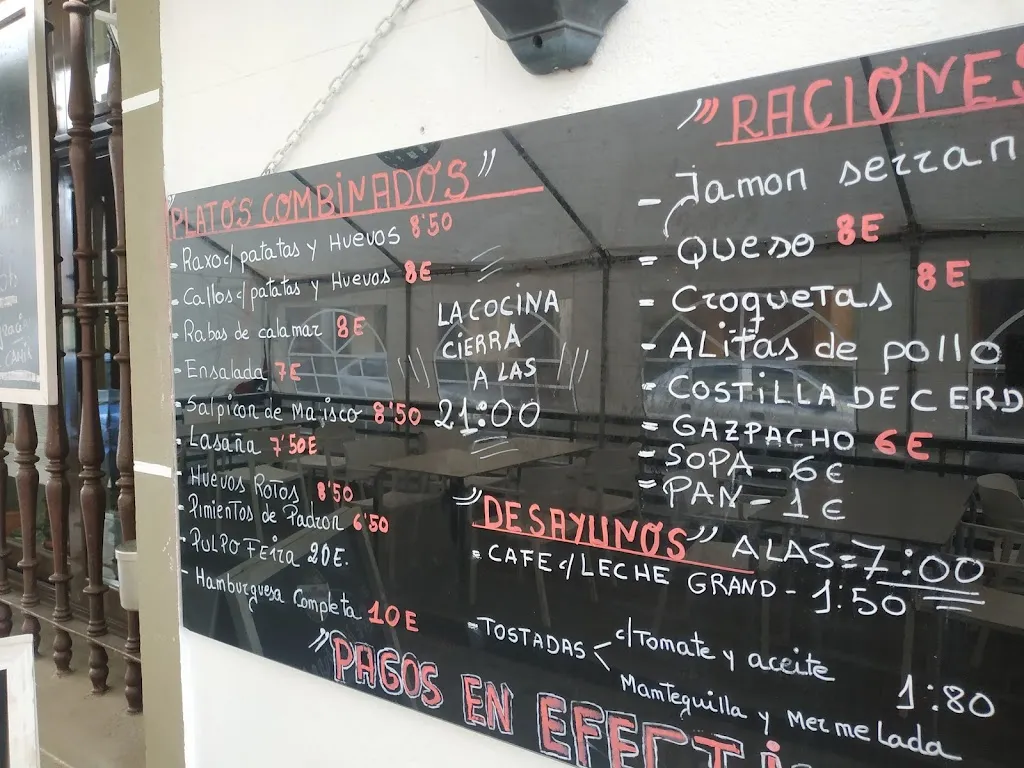 "PLATOS COMBINADOS"
- Raxo c/ patatas y Huevos 8'50
- Callos c/ patatas y Huevos 8E
- Rabas de calamar 8E
- Ensalada 7E
- Salpicon de Maisco 8'50
- Lasaña 7'50E
- Huevos Rotos 8'50
- Pimientos de Padron 6'50
- PULPO Feira 20E.
- Hamburguesa Completa 10E
LA COCINA
CIERRA
A LAS
21:00
"RACIONES
- Jamon serran
= Queso 8E
= CroqueTas 8E
- ALiTas de pollo
= COSTILLA DE CERD
= GAZPACHO 6E
= SOPA - 6€
= PAN - 1€
"DESAYUNOS" A LAS = 7:00
= CAFE c/ LECHE GRAND - 1:50
= TOSTADAS < c/ Tomate y aceite
Mamteguilla y Mermelada 1:80
"PAGOS EN EFECTI